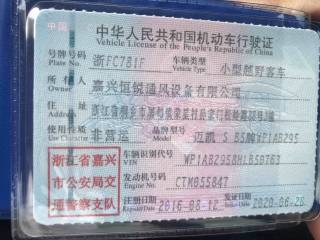 中国
中华人民共和国机动车行驶证
Vehicle License of the People's Republic of China
号牌号码 浙FC781F 车辆类型 小型越野客车
Plate No. Vehicle Type
所有人 嘉兴恒锐通风设备有限公司
Owner
住址 浙江省桐乡市
Address
使用性质 非营运 品牌型号 迈凯 S B5牌WP1AB295
Use Character Model
浙江省嘉兴市公安局交通警察支队
车辆识别代号 WP1AB2958HLB50763
VIN
发动机号码 CTM055847
Engine No.
注册日期 2016-08-12 发证日期 2020-06-28
Register Date Issue Date